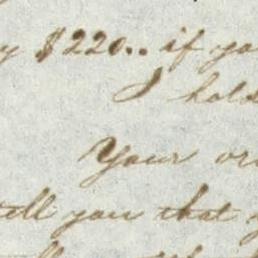 y $220.. if yo
I hold
Your or
tell you that